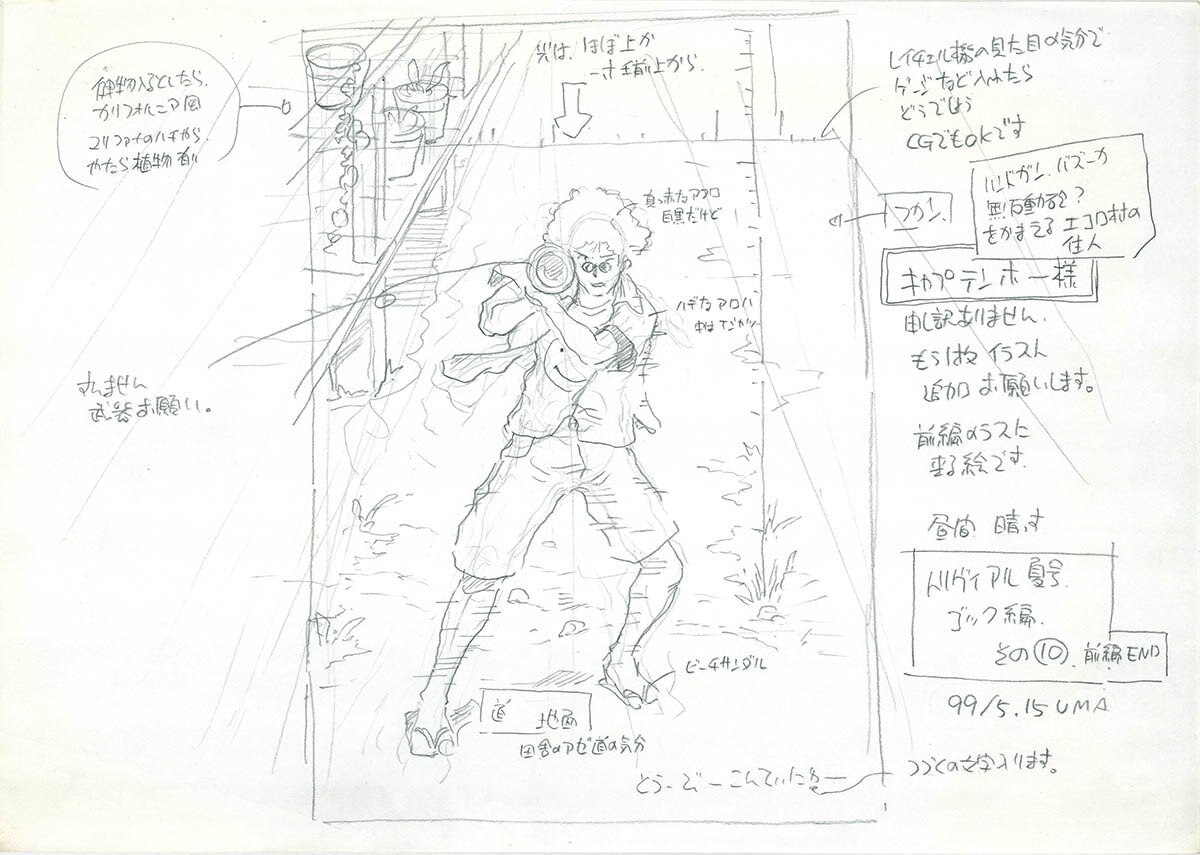 植物入るとしたら、
カリフォルニア風
やたら植物有り
光は、ほぼ上か
一寸手前上から。
レイチェル機の見た目の気分で
ゲージなど入れたら
どうでしょう
CGでもOKです
ハンドガン、バズーカ
無反動砲?
をかまえる エコロ村の
住人
つかい、
キャプテンホー様
申し訳ありません。
もう1枚 イラスト
追加 お願いします。
前編のラストに
来る絵です。
昼間 晴れ
トリヴィアル 夏号
ゴック編
その⑩ 前編END
99/5.15 UMA
つづくの文字入ります。
真っ赤なアフロ
目黒だけど
ハデなアロハ
すいません
武器お願い。
ビーチサンダル
道 地面
田舎のアゼ道の気分
とぅー びー こんてぃにゅー